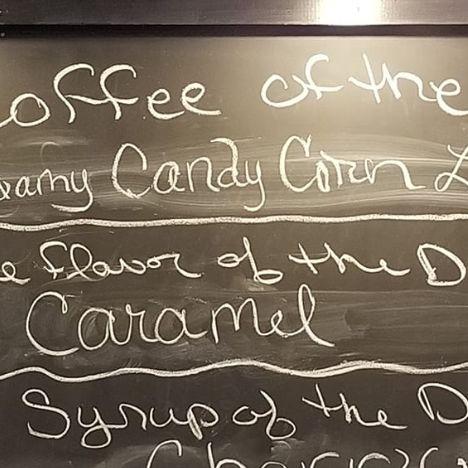 offee of the
eamy Candy Corn L
e flavor of the D
Caramel
Syrup of the D
Cherry